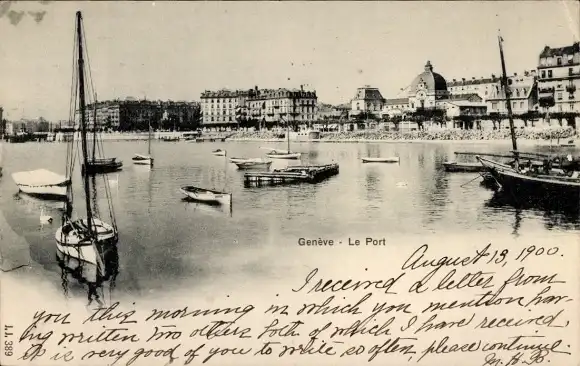 Genève - Le Port
August 13, 1900.
I received a letter from
you this morning in which you mention hav-
ing written two others both of which I have received.
It is very good of you to write so often, please continue.
M. H. B.
J.J. 389